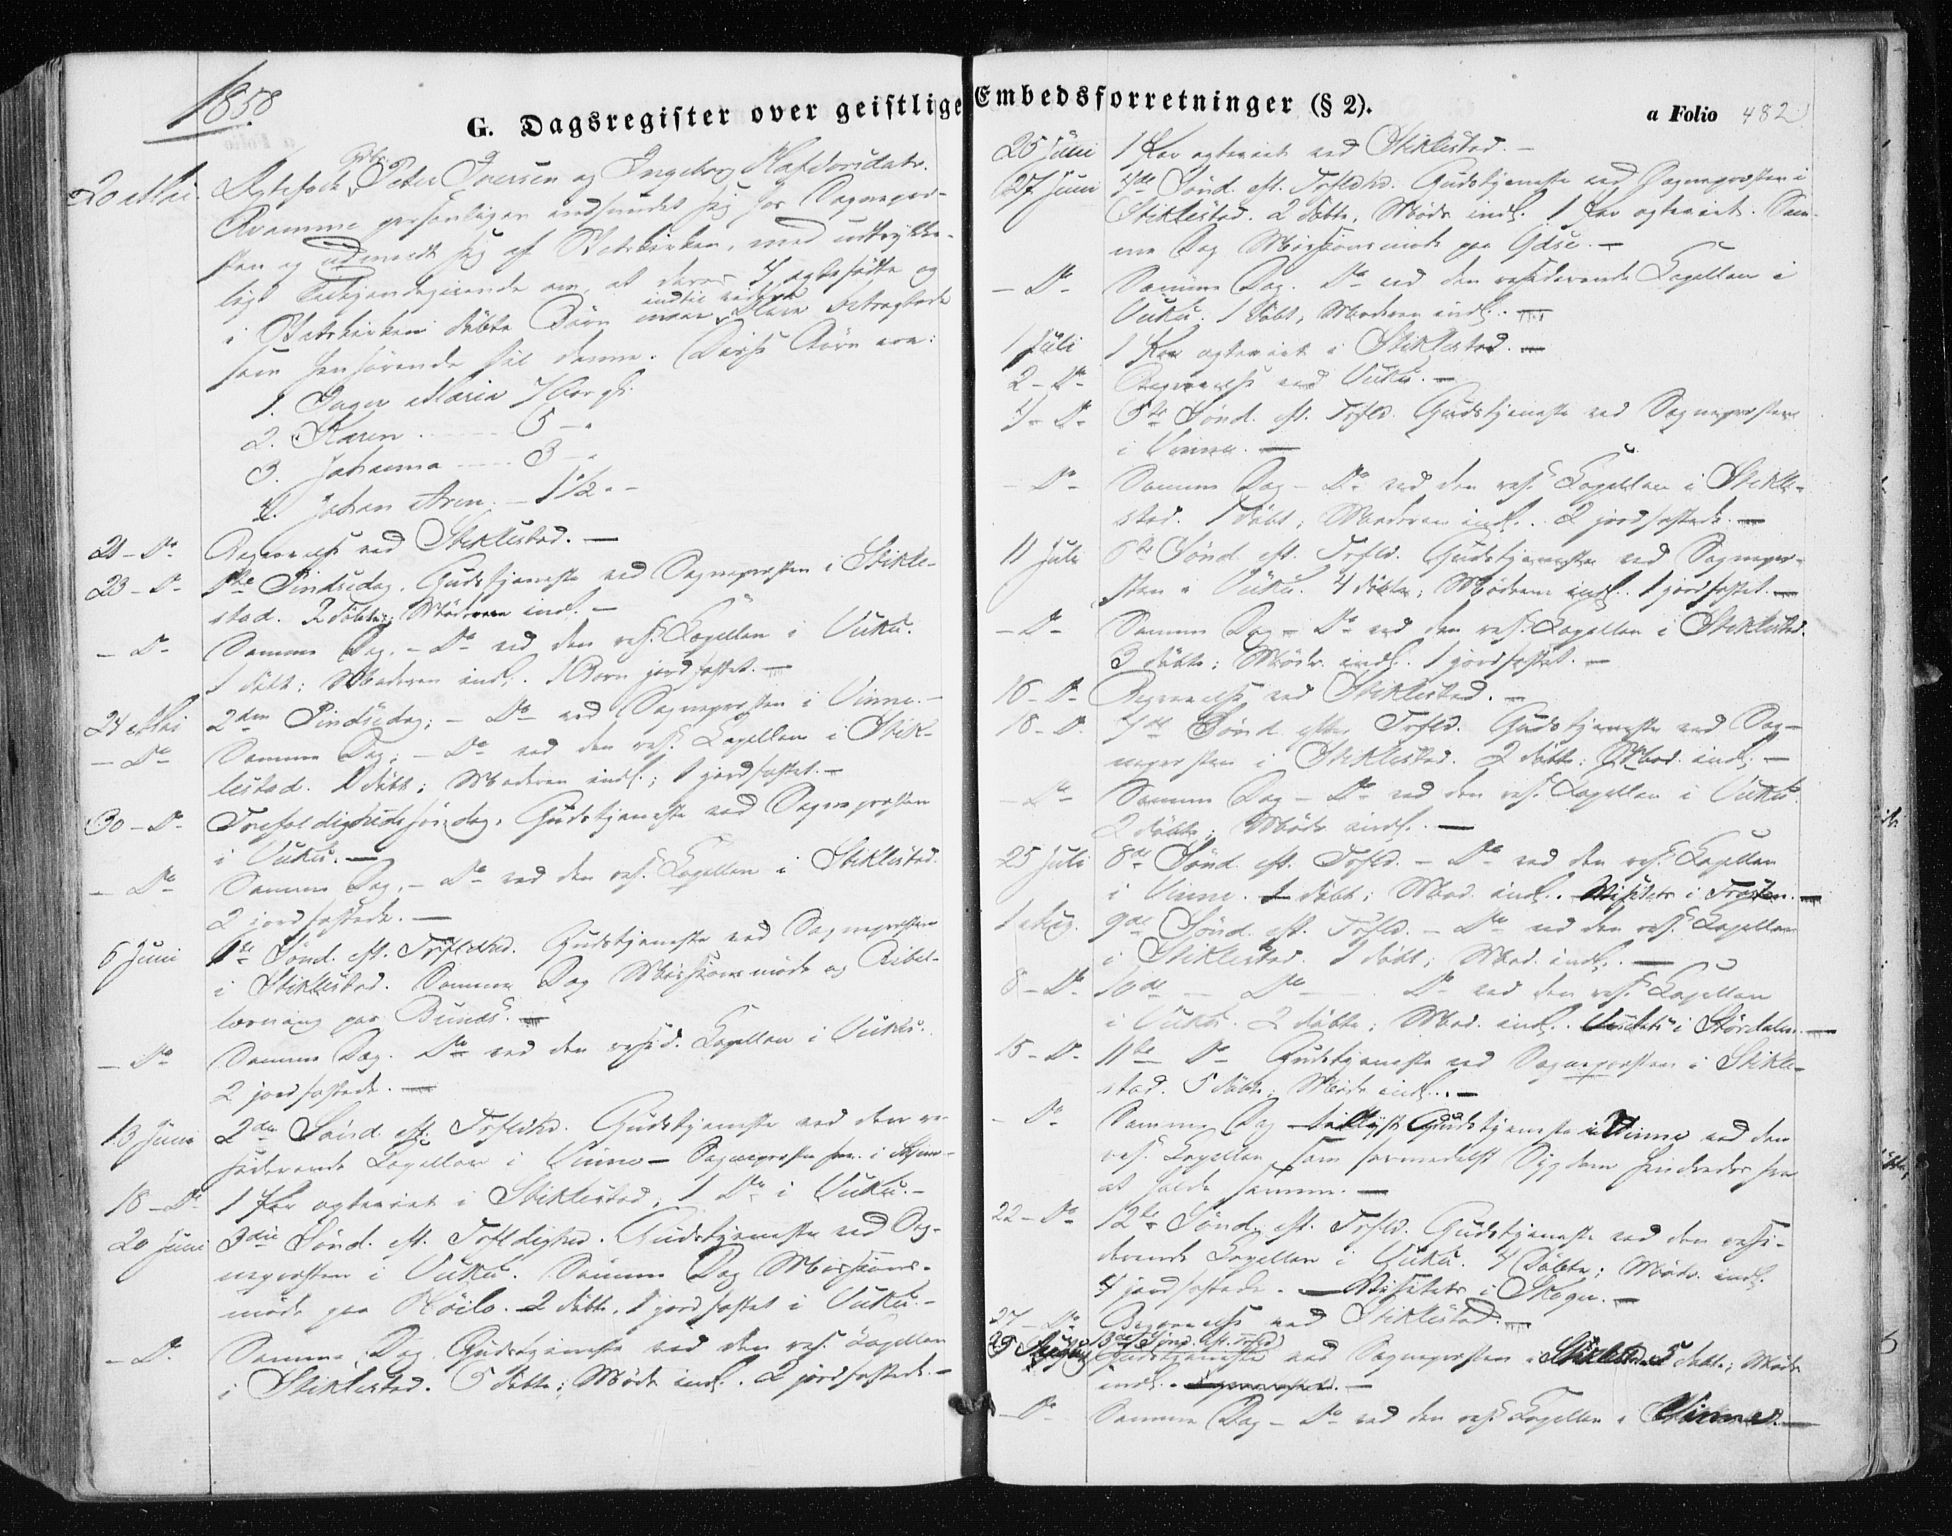 1858
G. Dagsregister over geistlige Embedsforretninger (§ 2).
a Folio 482
20 Mai. Ægtefolk Peter Iversen og Ingeborg Haldorsdatr.
personligen indfundet sig hos Sognepræ-
sten og udmeldt sig af Statskirken, med udtrykke-
ligt Tilkjendegivende om, at deres 4 ægtefødte og
i Statskirken døbte Børn indtil videre betragtede
som henhørende til denne. Disse Børn ere:
1. Inger Maria 7
2. Karen 5 -
3. Johanna 3 -
4. Johan 1½ -
21 - Do Begravelse ved Stiklestad. —
23 - Do 1ste Pindsedag. Gudstjeneste ved Sognepræsten i Stikle-
stad. 2 døbte; Mødrene indl. —
— Do Samme Dag. — Do ved den res. Capellan i Vuku.
1 døbt; Moderen indl. 1 Barn jordfæstet. —
24 Mai 2den Pindsedag; — Do ved Sognepræsten i Vinne. —
— Do Samme Dag; — Do ved den res. Capellan i Stik-
lestad. 1 døbt; Moderen indl.; 1 jordfæstet. —
30 - Do Trefoldighedssøndag. Gudstjeneste ved Sognepræsten
i Vuku. —
— Do Samme Dag. — Do ved den res. Capellan i Stiklestad.
2 jordfæstede. —
6 Juni 1ste Sønd. eft. Trfldhd. Gudstjeneste ved Sognepræsten
i Stiklestad. Samme Dag Missionsmøde og Bibel-
læsning paa
— Do Samme Dag. Do ved den resid. Capellan i Vuku.
2 jordfæstede. —
13 Juni 2den Sønd. eft. Trfldhd. Gudstjeneste ved den re-
siderende Capellan i Vinne —
18 - Do 1 Par ægteviet i Stiklestad, 1 Do i Vuku. —
20 Juni 3die Sønd. eft. Trfldighed. Gudstjeneste ved Sog-
nepræsten i Vuku. Samme Dag Missions-
møde paa 2 døbte, 1 jordfæstet i Vuku. —
— Do Samme Dag. Gudstjeneste ved den res. Capellan
i Stiklestad. 5 døbte; Mødr. indl. 2 jordfæstede. —
25 Juni 1 Par ægteviet ved Stiklestad. —
27 Juni 4de Sønd. eft. Trfldhd. Gudstjeneste ved Sognepræsten i
Stiklestad. 2 døbte, Mødr. indl. 1 Par ægteviet. Sam-
me Dag Missionsmøde paa
— Do Samme Dag. Do ved den residerende Capellan i
Vuku. 1 døbt, Moderen indl. —
1 Juli 1 Par ægteviet i Stiklestad. —
2 - Do Begravelse ved Vuku. —
4 - Do 5te Sønd. eft. Trfld. Gudstjeneste ved Sognepræsten
i Vinne. —
— Do Samme Dag — Do ved den res. Capellan i Stikle-
stad. 1 døbt; Moderen indl. 2 jordfæstede. —
11 Juli 6te Sønd. eft. Trfld. Gudstjeneste ved Sognepræ-
sten i Vuku. 4 døbte; Mødrene indl. 1 jordfæstet. —
— Do Samme Dag — Do ved den res. Capellan i Stiklestad.
3 døbte; Mødr. indl. 1 jordfæstet. —
16 - Do Begravelse ved Stiklestad. —
18 - Do 7de Sønd. efter Trfld. Gudstjeneste ved Sog-
nepræsten i Stiklestad. 2 døbte; Mød. indl. —
— Do Samme Dag — Do ved den res. Capellan i Vuku.
2 døbte; Mødr. indl. —
25 Juli 8de Sønd. eft. Trfld. — Do ved den res. Capellan
i Vinne. 1 døbt; Mod. indl. Visitats i Frosten. —
1 Aug. 9de Sønd. eft. Trfld. — Do ved den res. Capellan
i Stiklestad. 1 døbt; Mod. indl. —
8 - Do 10de — Do — Do ved den res. Capellan
i Vuku. 2 døbte; Mød. indl. Visitats i Størdalen. —
15 - Do 11te Do Gudstjeneste ved Sognepræsten i Stikle-
stad. 5 døbte; Mødr. indl. —
— Do Samme Dag tillyst Gudstjeneste i Vinne ved den
res. Capellan som formedelst Sygdom hindredes fra
at holde samme. —
22 - Do 12te Sønd. eft. Trfld. Gudstjeneste ved den resi-
derende Capellan i Vuku. 4 Døbte; Mødr. indl.
4 jordfæstede. — Visitats i Skogn. —
27 - Do Begravelse ved Stiklestad. —
29 August 13de Sønd. eft. Trfld.
Gudstjeneste ved Sognepræsten i Stiklestad. 5 døbte; Mødr.
indl. —
— Do Samme Dag — Do ved den res. Capellan i Vinne. —